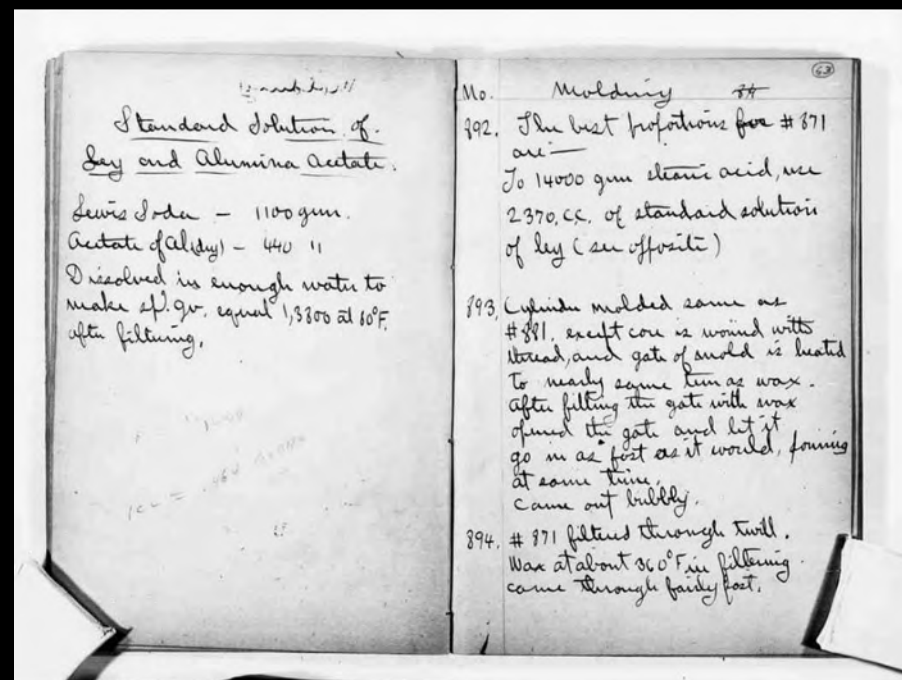 Standard Solution of
Ley and Alumina Acetate.
Lewis Soda — 1100 gum.
Acetate of Al(dry) — 440 "
Dissolved in enough water to
make sp. gv. equal 1,3300 at 60°F.
after filtering.
1cc = .464 grams
63
No. Molding
892. The best proportions for # 871
are —
To 14000 gum stearic acid, use
2370, CC. of standard solution
of ley (see opposite)
893, Cylinder molded same as
#881. except core is wound with
thread, and gate of mold is heated
to nearly same tem as wax.
After filling the gate with wax
opened the gate and let it
go in as fast as it would, forming
at same time.
Came out bubbly.
894. # 871 filtered through twill.
Wax at about 360°F in filtering
came through fairly fast.